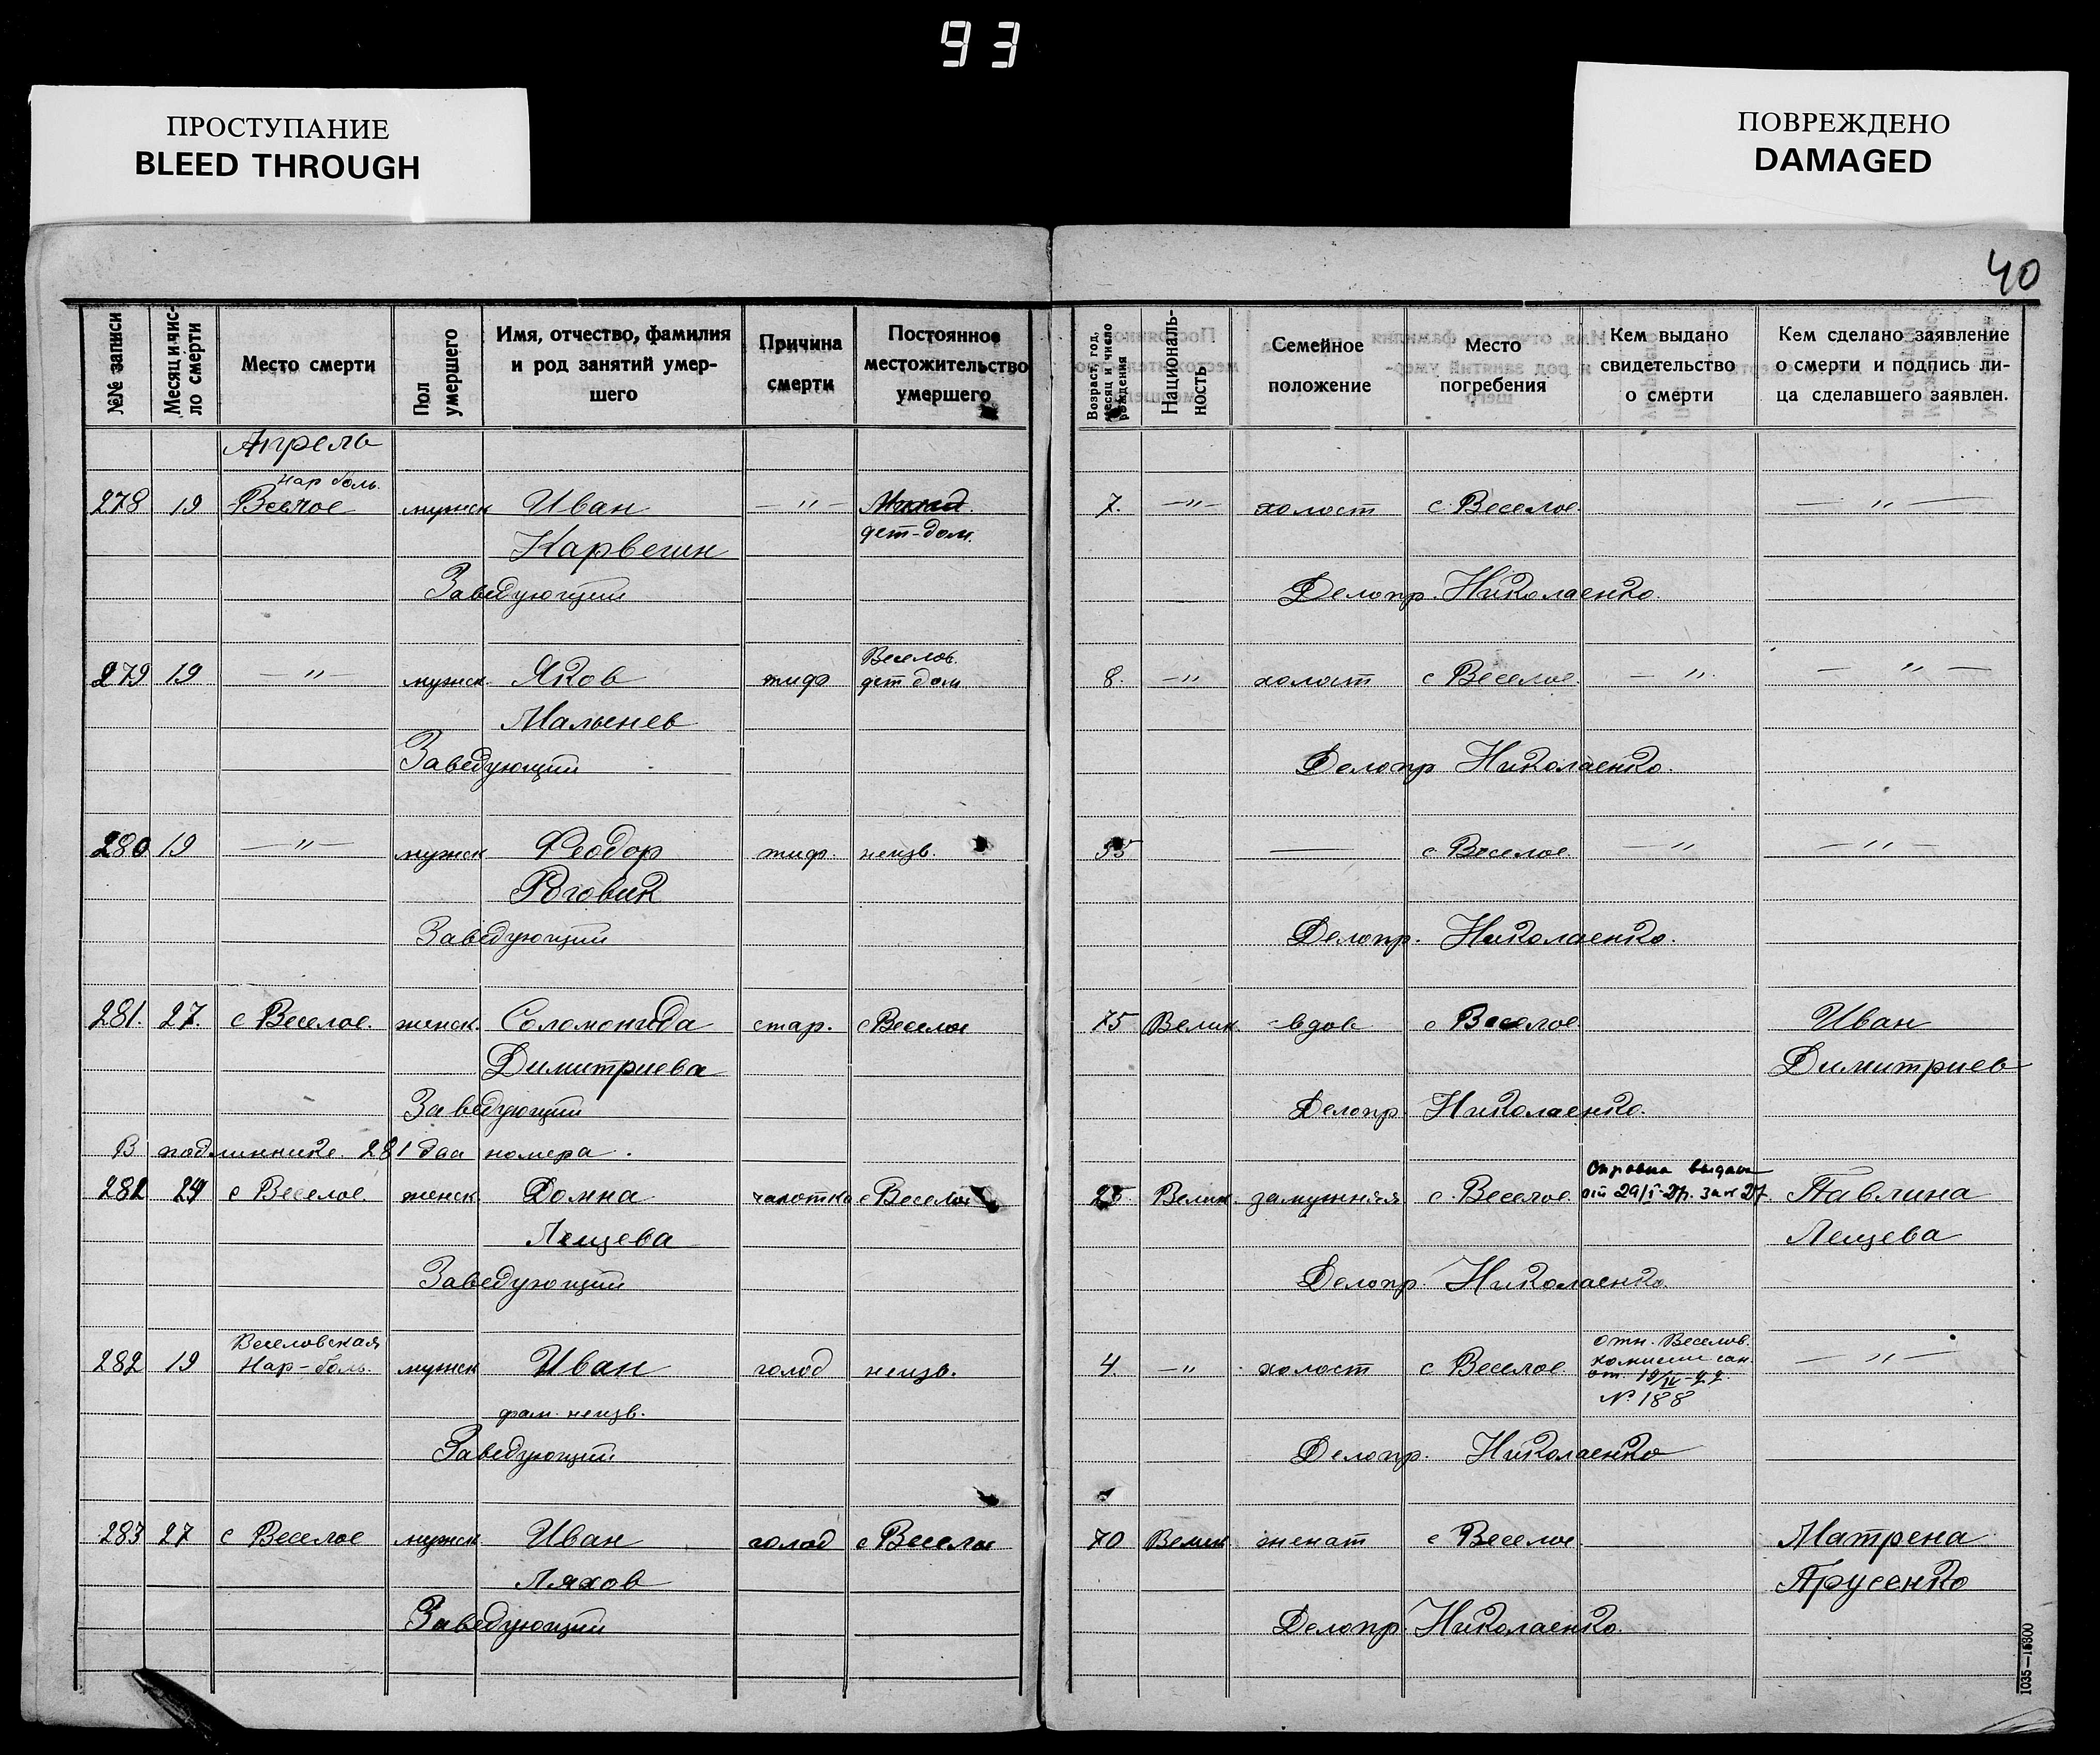 93
ПРОСТУПАНИЕ
BLEED THROUGH
ПОВРЕЖДЕНО
DAMAGED
40
№№ записи
Месяц и чис-
ло смерти
Место смерти
Пол
умершего
Имя, отчество, фамилия
и род занятий умер-
шего
Причина
смерти
Постоянное
местожительство
умершего
Возраст, год,
месяц и число
рождения
Националь-
ность
Семейное
положение
Место
погребения
Кем выдано
свидетельство
о смерти
Кем сделано заявление
о смерти и подпись ли-
ца сделавшего заявлен.
Апрель
Нар боль.
278 19 Веслое мужск Иван — " — 7. — " — холост с Веселое — " —
Карвегин дет-дом.
Заведующий Делопр. Николаенко.
Веселов.
279 19 — " — мужск. Яков тиф дет дом 8. — " холост с Веселое — ". — " —
Мальенев
Заведующий Делопр Николаенко.
280 19 — " — мужск Феодор тиф. неизв. 55 — с Веселое — " — " —
Роговик
Заведующий Делопр. Николаенко.
281. 27. с Веселое. женск. Соломонида стар. с Веселое 75 Велик -вдов с Веселое Иван
Димитриева Димитриев
Заведующий Делопр. Николаенко.
В подлиннике 281 два номера.
Справка выдана
281 24 с Веселое женск Домна чахотка с Веселое 25 Велик. замужняя с. Веселое Павлина
Лещева Лещева
Заведующий Делопр. Николаенко.
Веселовская отн. Веселов.
282 19 Нар-боль. мужск Иван голод неизв. 4. — " холост с Веселое комисии сан. — " —
от 19/IV-22.
фам. неизв. № 188
Заведующий Делопр. Николаенко
283 27 с Веселое мужск. Иван голод с Веселое 70 Велик женат с Веселое — Матрена
Ляхов Прусенко
Заведующий Делопр. Николаенко.
1035—15300